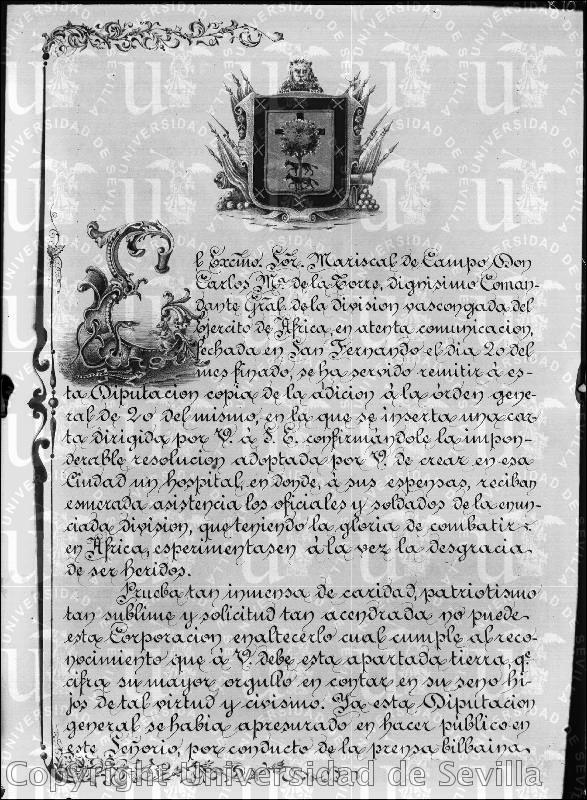 El Excmo. Sor. Mariscal de Campo Don
Carlos Ma. de la Torre, dignisimo Coman-
dante Gral. de la division vascongada del
ejercito de Africa, en atenta comunicacion,
fechada en San Fernando el dia 20 del
mes finado, se ha servido remitir á es-
ta Diputacion copia de la adicion á la órden gene-
ral de 20 del mismo, en la que se inserta una car-
ta dirigida por V. á S. E. confirmándole la impon-
derable resolucion adoptada por V. de crear en esa
Ciudad un hospital, en donde, á sus espensas, reciban
esmerada asistencia los oficiales y soldados de la enun-
ciada division, que teniendo la gloria de combatir
en Africa, esperimentasen á la vez la desgracia
de ser heridos.
Prueba tan inmensa de caridad, patriotismo
tan sublime y solicitud tan acendrada no puede
esta Corporacion enaltecerlo cual cumple al reco-
nocimiento que á V. debe esta apartada tierra, qe.
cifra su mayor orgullo en contar en su seno hi-
jos de tal virtud y civismo. Ya esta Diputacion
general se habia apresurado en hacer público en
este Señorio, por conducto de la prensa bilbaina,
Copyright Universidad de Sevilla
UNIVERSIDAD DE SEVILLA